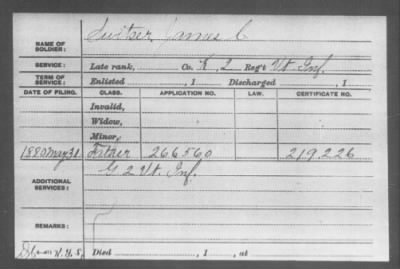 NAME OF SOLDIER: Switser, James C
SERVICE: Late rank, Co. K, 2 Reg't Vt. Inf.
TERM OF SERVICE: Enlisted , 1 Discharged , 1
DATE OF FILING. CLASS. APPLICATION NO. LAW. CERTIFICATE NO.
Invalid,
Widow,
Minor,
1880 May 31 Father 266.560 219.226
ADDITIONAL SERVICES: G 2 Vt. Inf.
REMARKS:
Died , 1 , at